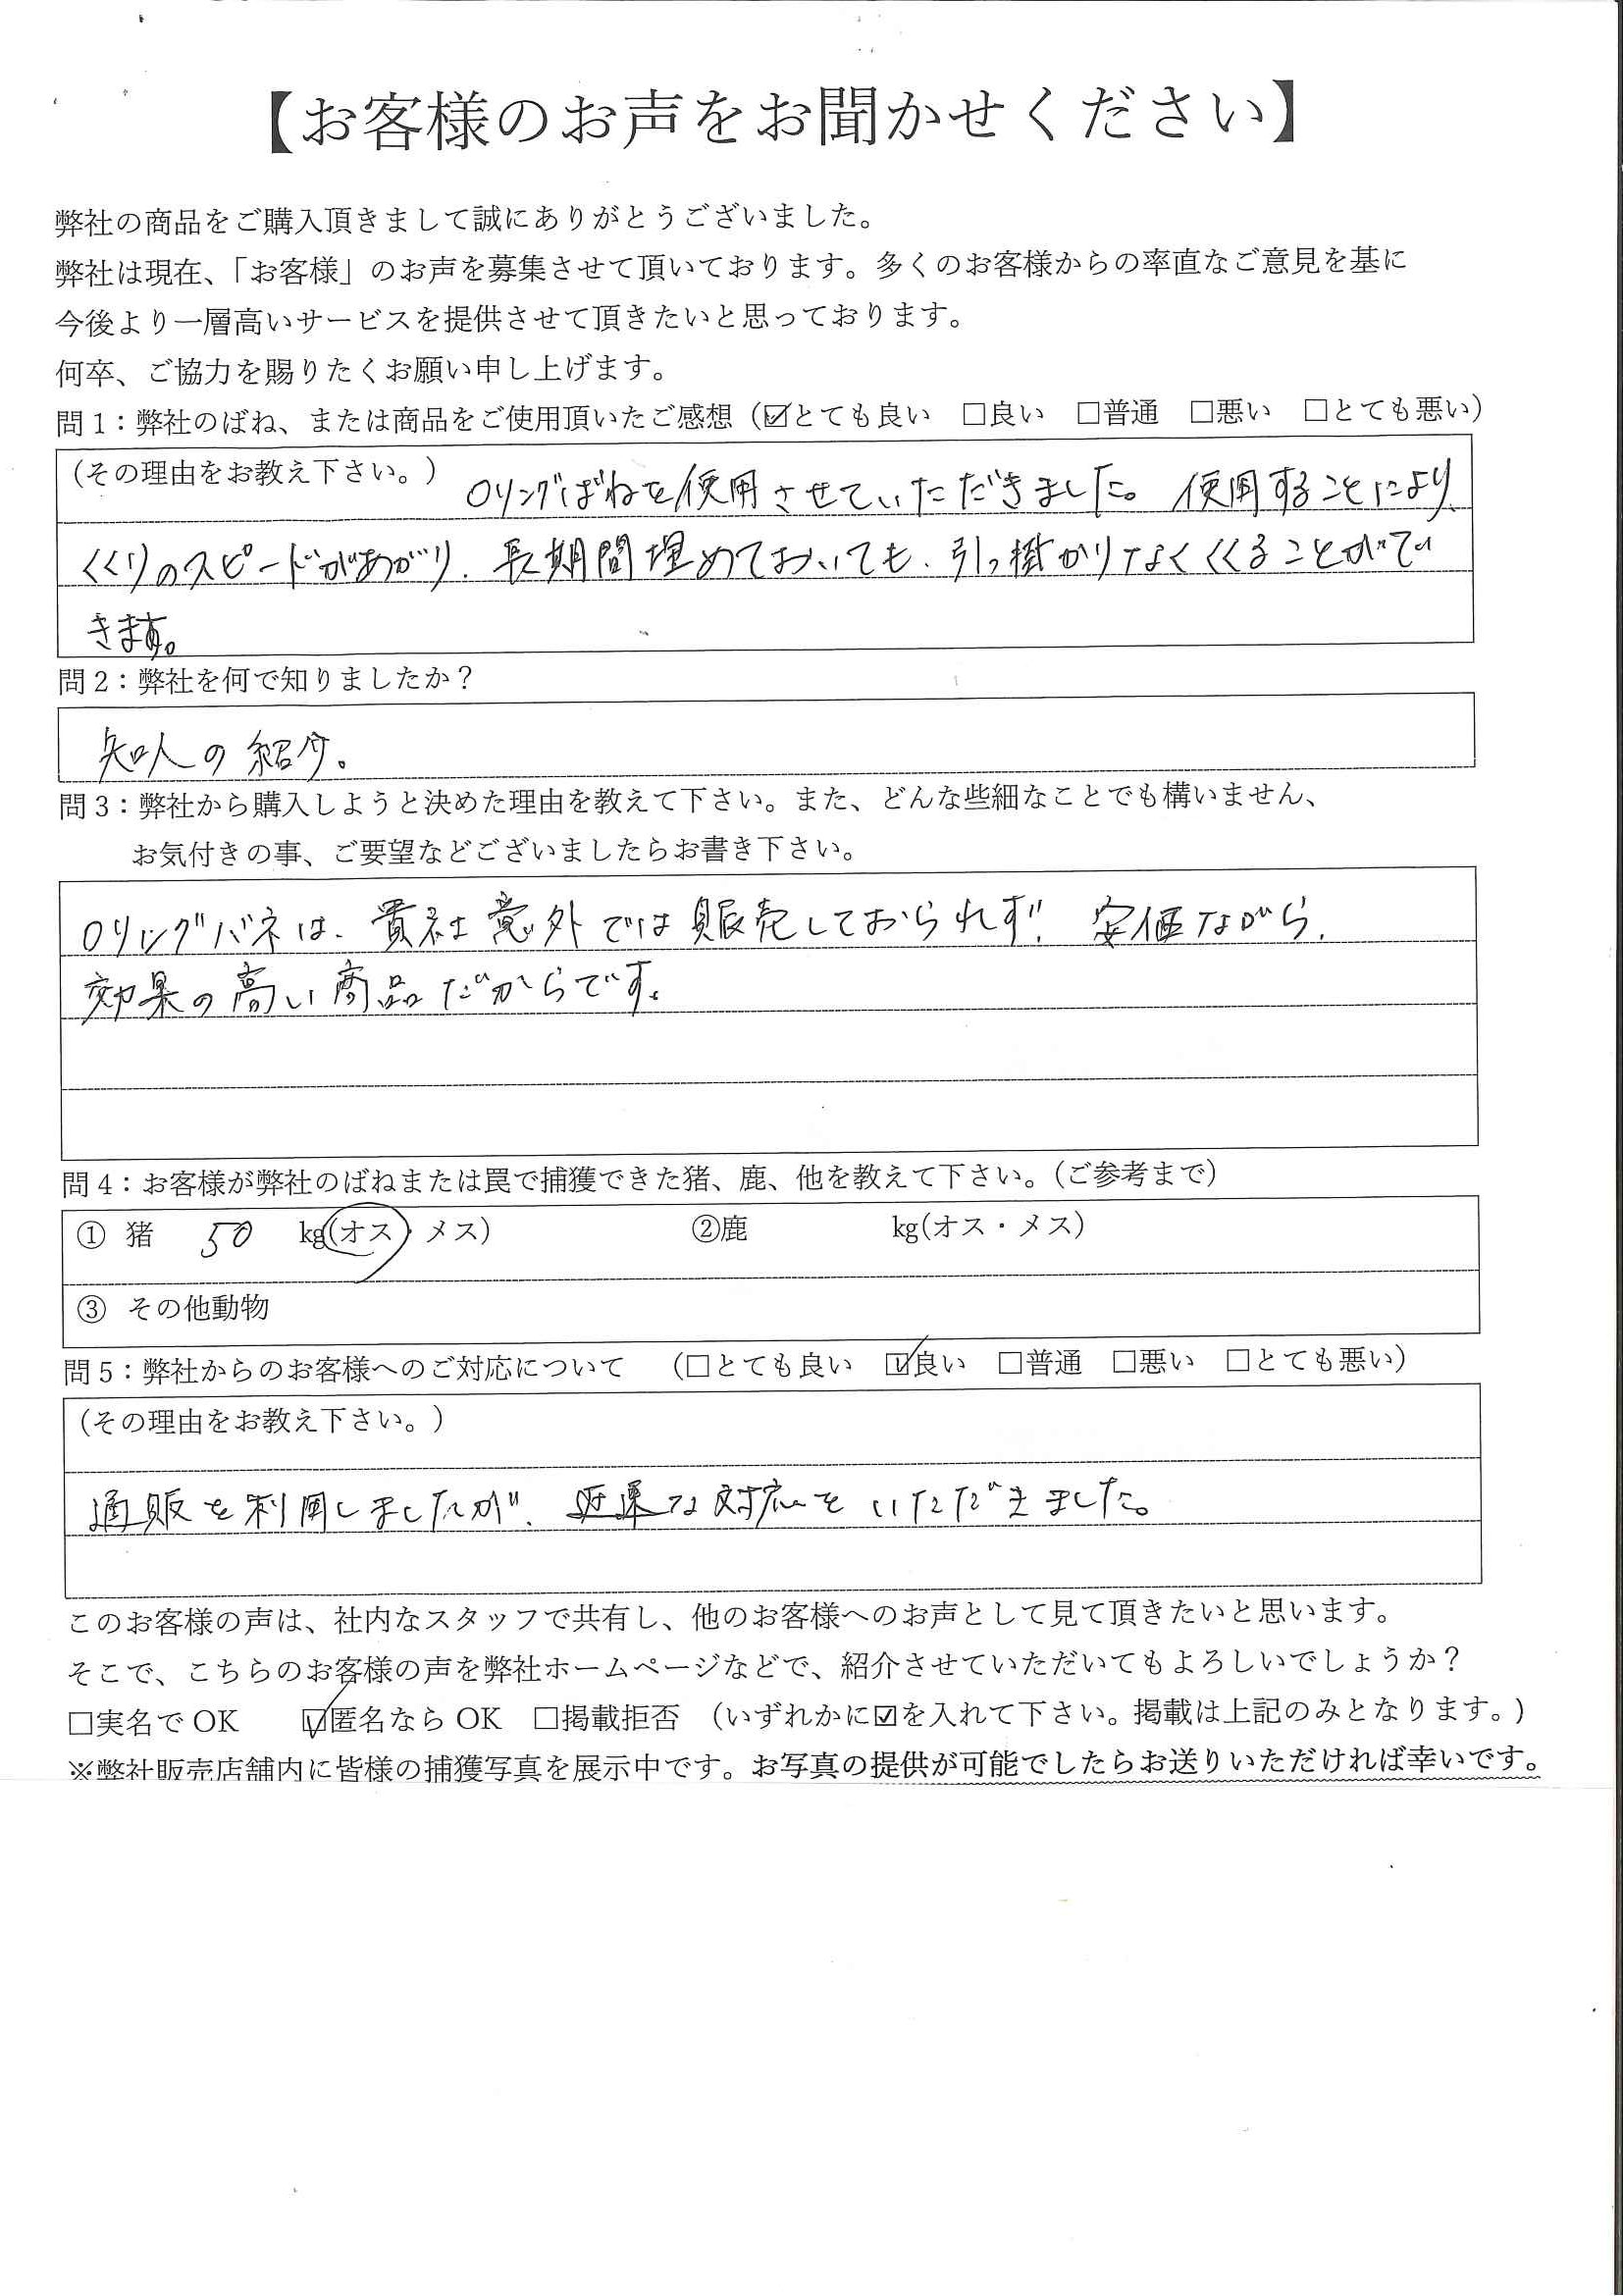 【お客様のお声をお聞かせください】
弊社の商品をご購入頂きまして誠にありがとうございました。
弊社は現在、「お客様」のお声を募集させて頂いております。多くのお客様からの率直なご意見を基に
今後より一層高いサービスを提供させて頂きたいと思っております。
何卒、ご協力を賜りたくお願い申し上げます。
問1：弊社のばね、または商品をご使用頂いたご感想（☑とても良い　□良い　□普通　□悪い　□とても悪い）
（その理由をお教え下さい。）　Oリングばねを使用させていただきました。使用することにより、
くくりのスピードがあがり、長期間埋めておいても、引っ掛かりなくくくることがで
きます。
問2：弊社を何で知りましたか？
知人の紹介。
問3：弊社から購入しようと決めた理由を教えて下さい。また、どんな些細なことでも構いません、
お気付きの事、ご要望などございましたらお書き下さい。
Oリングバネは、貴社意外では販売しておられず、安価ながら、
効果の高い商品だからです。
問4：お客様が弊社のばねまたは罠で捕獲できた猪、鹿、他を教えて下さい。（ご参考まで）
① 猪　50　kg(オス・メス)　②鹿　kg(オス・メス)
③ その他動物
問5：弊社からのお客様へのご対応について　（□とても良い　☑良い　□普通　□悪い　□とても悪い）
（その理由をお教え下さい。）
通販を利用しましたが、な対応をいただきました。
このお客様の声は、社内なスタッフで共有し、他のお客様へのお声として見て頂きたいと思います。
そこで、こちらのお客様の声を弊社ホームページなどで、紹介させていただいてもよろしいでしょうか？
□実名でOK　☑匿名ならOK　□掲載拒否　（いずれかに☑を入れて下さい。掲載は上記のみとなります。）
※弊社販売店舗内に皆様の捕獲写真を展示中です。お写真の提供が可能でしたらお送りいただければ幸いです。